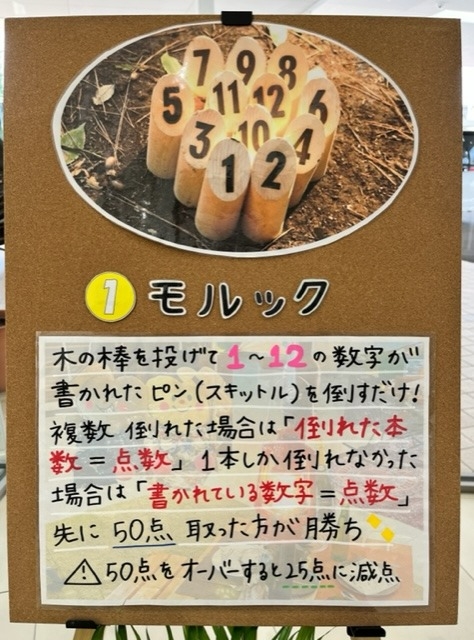 7 9 8
5 11 12 6
3 10 4
1 2
1 モルック
木の棒を投げて1～12の数字が
書かれたピン(スキットル)を倒すだけ!
複数 倒れた場合は「倒れた本
数=点数」 1本しか倒れなかった
場合は「書かれている数字=点数」
先に 50点 取った方が勝ち
⚠50点をオーバーすると25点に減点